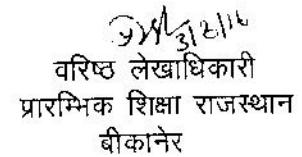 3/2/16
वरिष्ठ लेखाधिकारी
प्रारम्भिक शिक्षा राजस्थान
बीकानेर